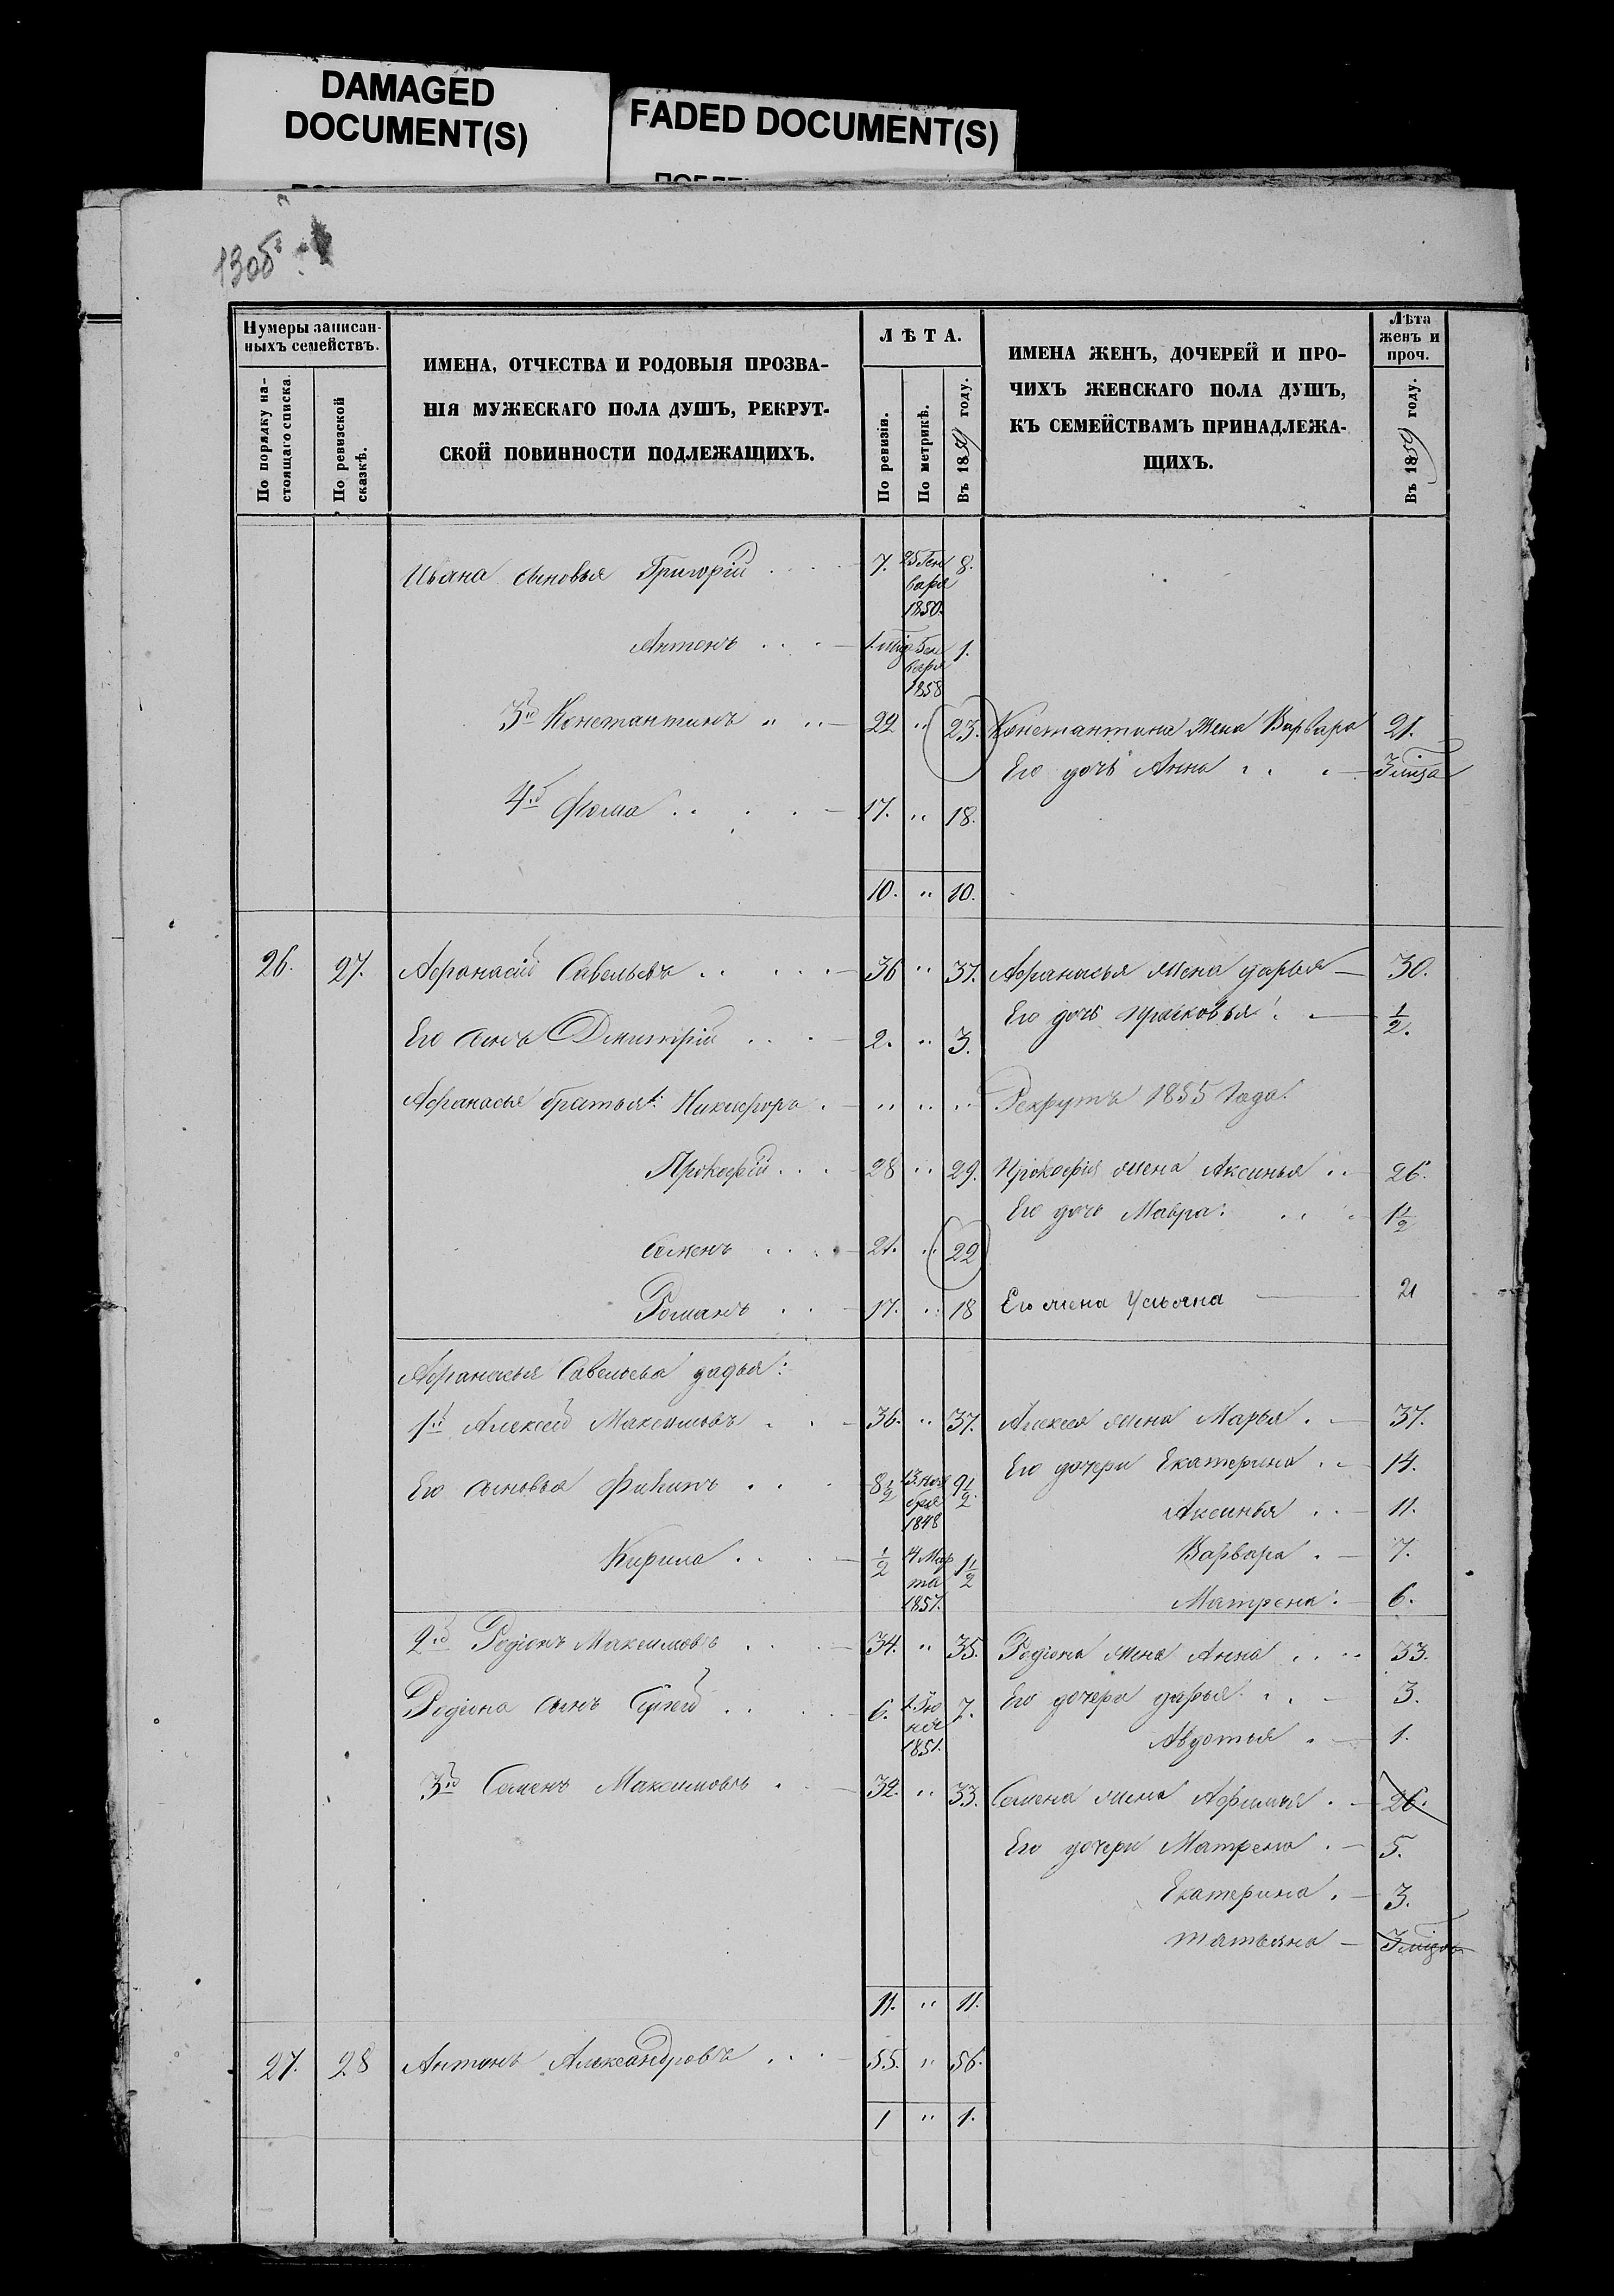 DAMAGED
DOCUMENT(S)
FADED DOCUMENT(S)
130б
Нумеры записан-
ныхъ семействъ.
По порядку на-
стоящаго списка.
По ревизской
сказкѣ.
ИМЕНА, ОТЧЕСТВА И РОДОВЫЯ ПРОЗВА-
НІЯ МУЖЕСКАГО ПОЛА ДУШЪ, РЕКРУТ-
СКОЙ ПОВИННОСТИ ПОДЛЕЖАЩИХЪ.
ЛѢТА.
По ревизіи.
По метрикѣ.
Въ 1859 году.
ИМЕНА ЖЕНЪ, ДОЧЕРЕЙ И ПРО-
ЧИХЪ ЖЕНСКАГО ПОЛА ДУШЪ,
КЪ СЕМЕЙСТВАМЪ ПРИНАДЛЕЖА-
ЩИХЪ.
Лѣта
женъ и
проч.
Въ 1859 году.
Ивана сыновья Григорій 7. 25 Ген
варя
1850. 8.
Антонъ Ген
варя
1858 1.
3й Константинъ 22 " 23. Константина жена Варвара 21.
Его дочь Анна
4й Фома 17. " 18.
10. " 10.
26. 27. Афанасій Савельевъ 36 " 37. Афанасья жена Дарья 30.
Его дочь Прасковья 1/2.
Его сынъ Дмитрій 2. " 3.
Афанасья братья: Никифоръ " " " Рекрутъ 1855 года.
Прокофій 28 " 29. Прокофія жена Аксинья 26.
Его дочь Мавра 1 1/2
Семенъ 21. " 22
Романъ 17. " 18 Его жена Ульяна 21
Афанасья Савельева дядья:
1й Алексей Максимовъ 36. " 37. Алексея жена Марья 37.
Его дочери Екатерина 14.
Его сыновья Филипъ 8 1/2 13 ноя
бря
1848 9 1/2.
Аксинья 11.
Кирила 1/2 Мар
та
1857. 1 1/2
Варвара 7.
Матрена 6.
2й Родіонъ Максимовъ 34. " 35. Родіона жена Анна 33.
Родіона сынъ Сергей 6. Ію
ня
1851. 7. Его дочери Дарья 3.
Авдотья 1.
3й Семенъ Максимовъ 32. " 33. Семена жена Афимья 26.
Его дочери Матрена 5.
Екатерина 3.
Татьяна
11. " 11.
27. 28 Антонъ Александровъ 55. " 56.
1 " 1.